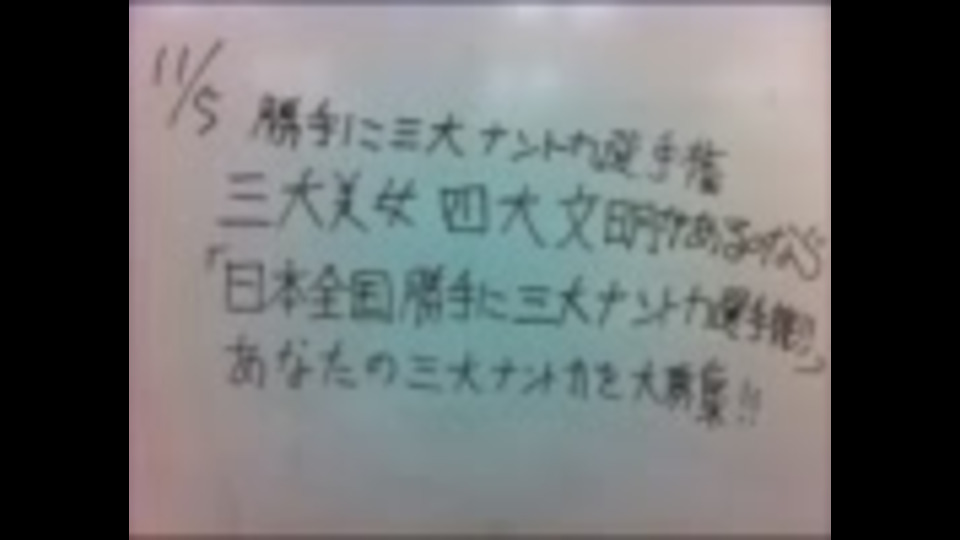 11/5
勝手に三大ナントカ選手権
三大美女 四大文明があるのなら
「日本全国勝手に三大ナントカ選手権!!」
あなたの三大ナントカを大募集!!